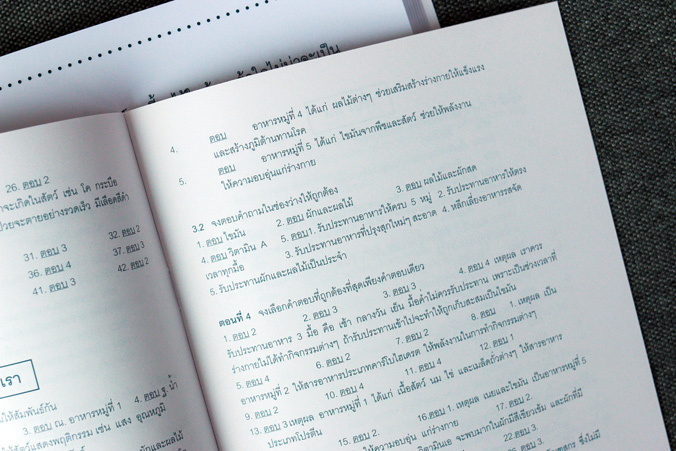 26. ตอบ 2
จะเกิดในสัตว์ เช่น โค กระบือ
ป่วยจะตายอย่างรวดเร็ว มีเลือดสีดำ
32. ตอบ 2
31. ตอบ 3
37. ตอบ 3
36. ตอบ 4
42. ตอบ 2
41. ตอบ 3
เรา
ให้สัมพันธ์กัน
3. ตอบ ณ. อาหารหมู่ที่ 1 4. ตอบ ฐ. น้ำ
ให้สัตว์แสดงพฤติกรรม เช่น แสง อุณหภูมิ
ผักและผลไม้
4. ตอบ อาหารหมู่ที่ 4 ได้แก่ ผลไม้ต่างๆ ช่วยเสริมสร้างร่างกายให้แข็งแรง
และสร้างภูมิต้านทานโรค
5. ตอบ อาหารหมู่ที่ 5 ได้แก่ ไขมันจากพืชและสัตว์ ช่วยให้พลังงาน
ให้ความอบอุ่นแก่ร่างกาย
3.2 จงตอบคำถามในช่องว่างให้ถูกต้อง
1. ตอบ ไขมัน 2. ตอบ ผักและผลไม้ 3. ตอบ ผลไม้และผักสด
4. ตอบ วิตามิน A 5. ตอบ 1. รับประทานอาหารให้ครบ 5 หมู่ 2. รับประทานอาหารให้ตรง
เวลาทุกมื้อ 3. รับประทานอาหารที่ปรุงสุกใหม่ๆ สะอาด 4. หลีกเลี่ยงอาหารรสจัด
5. รับประทานผักและผลไม้เป็นประจำ
ตอนที่ 4 จงเลือกคำตอบที่ถูกต้องที่สุดเพียงคำตอบเดียว
1. ตอบ 2 2. ตอบ 3 3. ตอบ 3 4. ตอบ 4 เหตุผล เราควร
รับประทานอาหาร 3 มื้อ คือ เช้า กลางวัน เย็น มื้อค่ำไม่ควรรับประทาน เพราะเป็นช่วงเวลาที่
ร่างกายไม่ได้ทำกิจกรรมต่างๆ ถ้ารับประทานเข้าไปจะทำให้ถูกเก็บสะสมเป็นไขมัน
5. ตอบ 4 6. ตอบ 2 7. ตอบ 2 8. ตอบ 1. เหตุผล เป็น
อาหารหมู่ที่ 2 ให้สารอาหารประเภทคาร์โบไฮเดรต ให้พลังงานในการทำกิจกรรมต่างๆ
9. ตอบ 2 10. ตอบ 4 11. ตอบ 4 12. ตอบ 1
13. ตอบ 3 เหตุผล อาหารหมู่ที่ 1 ได้แก่ เนื้อสัตว์ นม ไข่ และเมล็ดถั่วต่างๆ ให้สารอาหาร
ประเภทโปรตีน 15. ตอบ 2. 16. ตอบ 1. เหตุผล เนยและไขมัน เป็นอาหารหมู่ที่ 5
ให้ความอบอุ่น แก่ร่างกาย 17. ตอบ 2.
จะพบมากในผักมีสีเขียวเข้ม และผักที่มี
22. ตอบ 3.